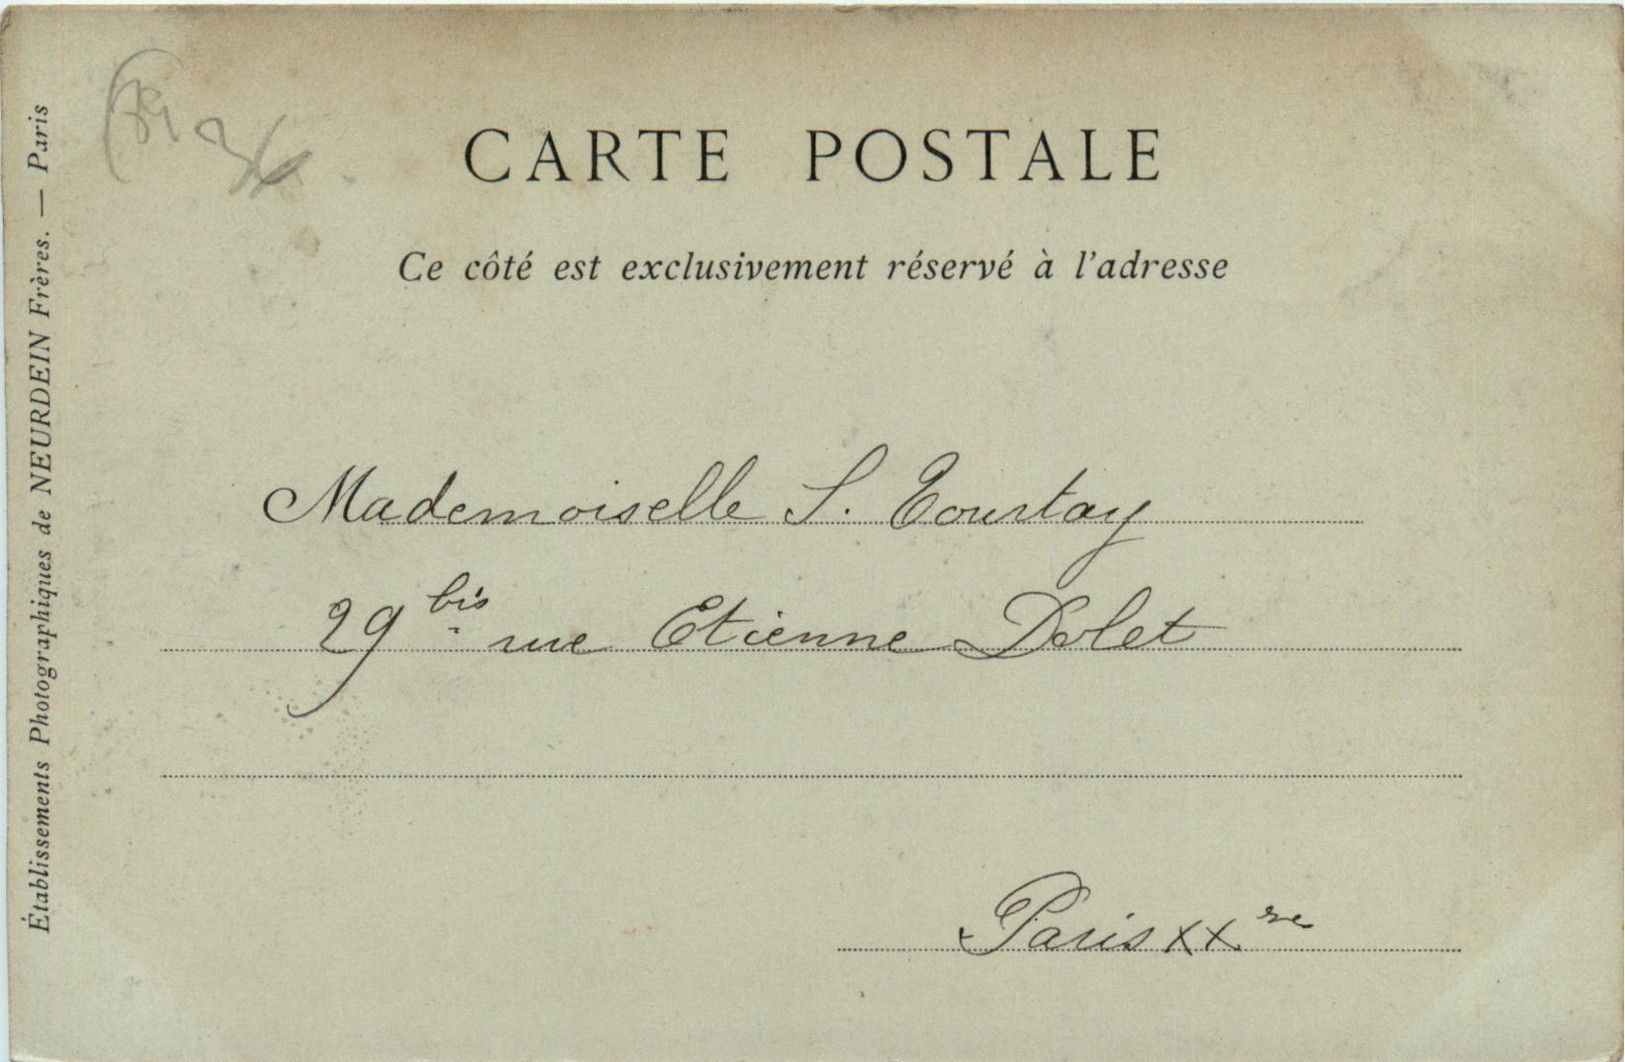 CARTE POSTALE
Ce côté est exclusivement réservé à l'adresse
Mademoiselle S. Tourtay
29 bis rue Etienne Dolet
Paris XXme
Établissements Photographiques de NEURDEIN Frères. — Paris